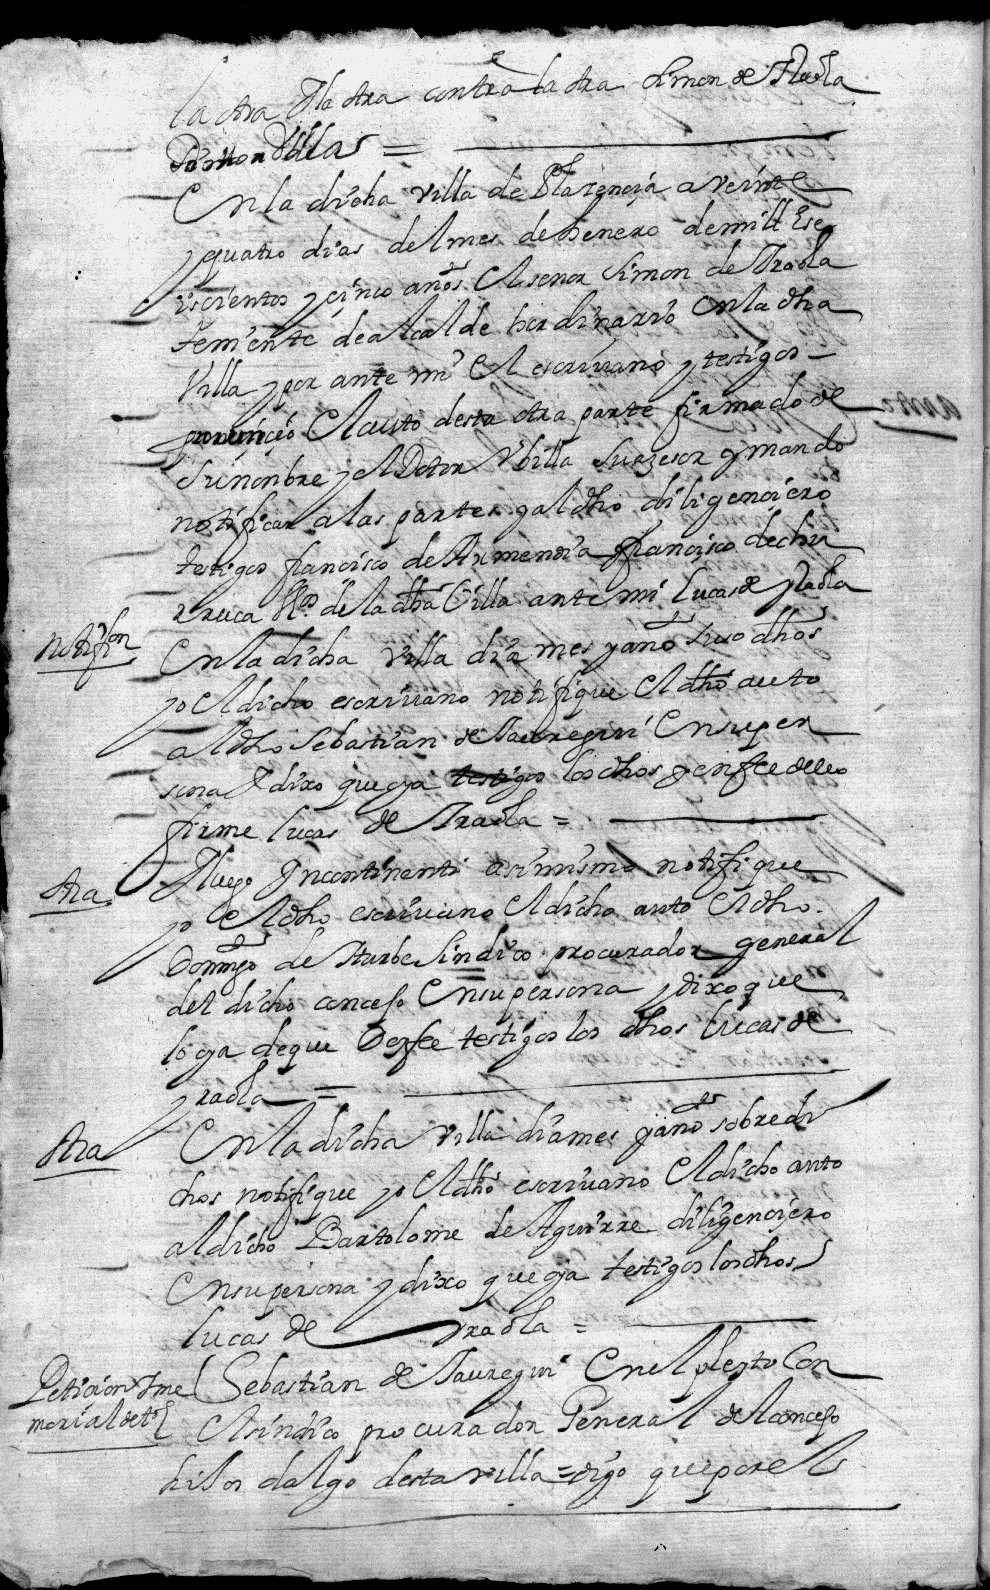 la otra y la otra contra la otra Simon de Yraola
Doctor Vbilla =
En la dicha villa de Plazencia a veinte
y quatro dias del mes de henero de mill E se
iscientos y cinco años El señor Simon de Yraola
teniente de alcalde hordinario en la dha
Villa y por ante mi El escriuano y testigos
pronunçio El auto desta otra parte firmado de
su nonbre y el Dotor Vbilla su asesor y mando
notificar a las partes y al dho diligenciero
testigos francisco de Armendia francisco de chu
rruca Vºs de la dha Villa ante mi Lucas de Yraola
Notifion
En la dicha villa dia mes y año suso dhos
yo El dicho escriuano notifique El dho auto
al dho Sebastian de Jauregui En su per
sona E dixo que oya testigos los dhos y en fee dello
firme Lucas de Yraola =
Otra
Y luego Yncontinenti asimismo notifique
yo El dho escriuano El dicho auto El dho
Domingo de Yturbe Sindico procurador general
del dicho concejo En su persona y dixo que
lo oya de que Doy fee testigos los dhos Lucas de
Yraola =
Otra
En la dicha villa dia mes y año sobre di
chos notifique yo El dho escriuano El dicho auto
al dicho Bartolome de Aguirre diligenciero
En su persona y dixo que oya testigos los dhos
Lucas de Yraola =
Peticion y me
morial de tºs
Sebastian de Jauregui En el pleyto Con
El sindico procurador General del concejo
hijos dalgo desta villa = digo que por el